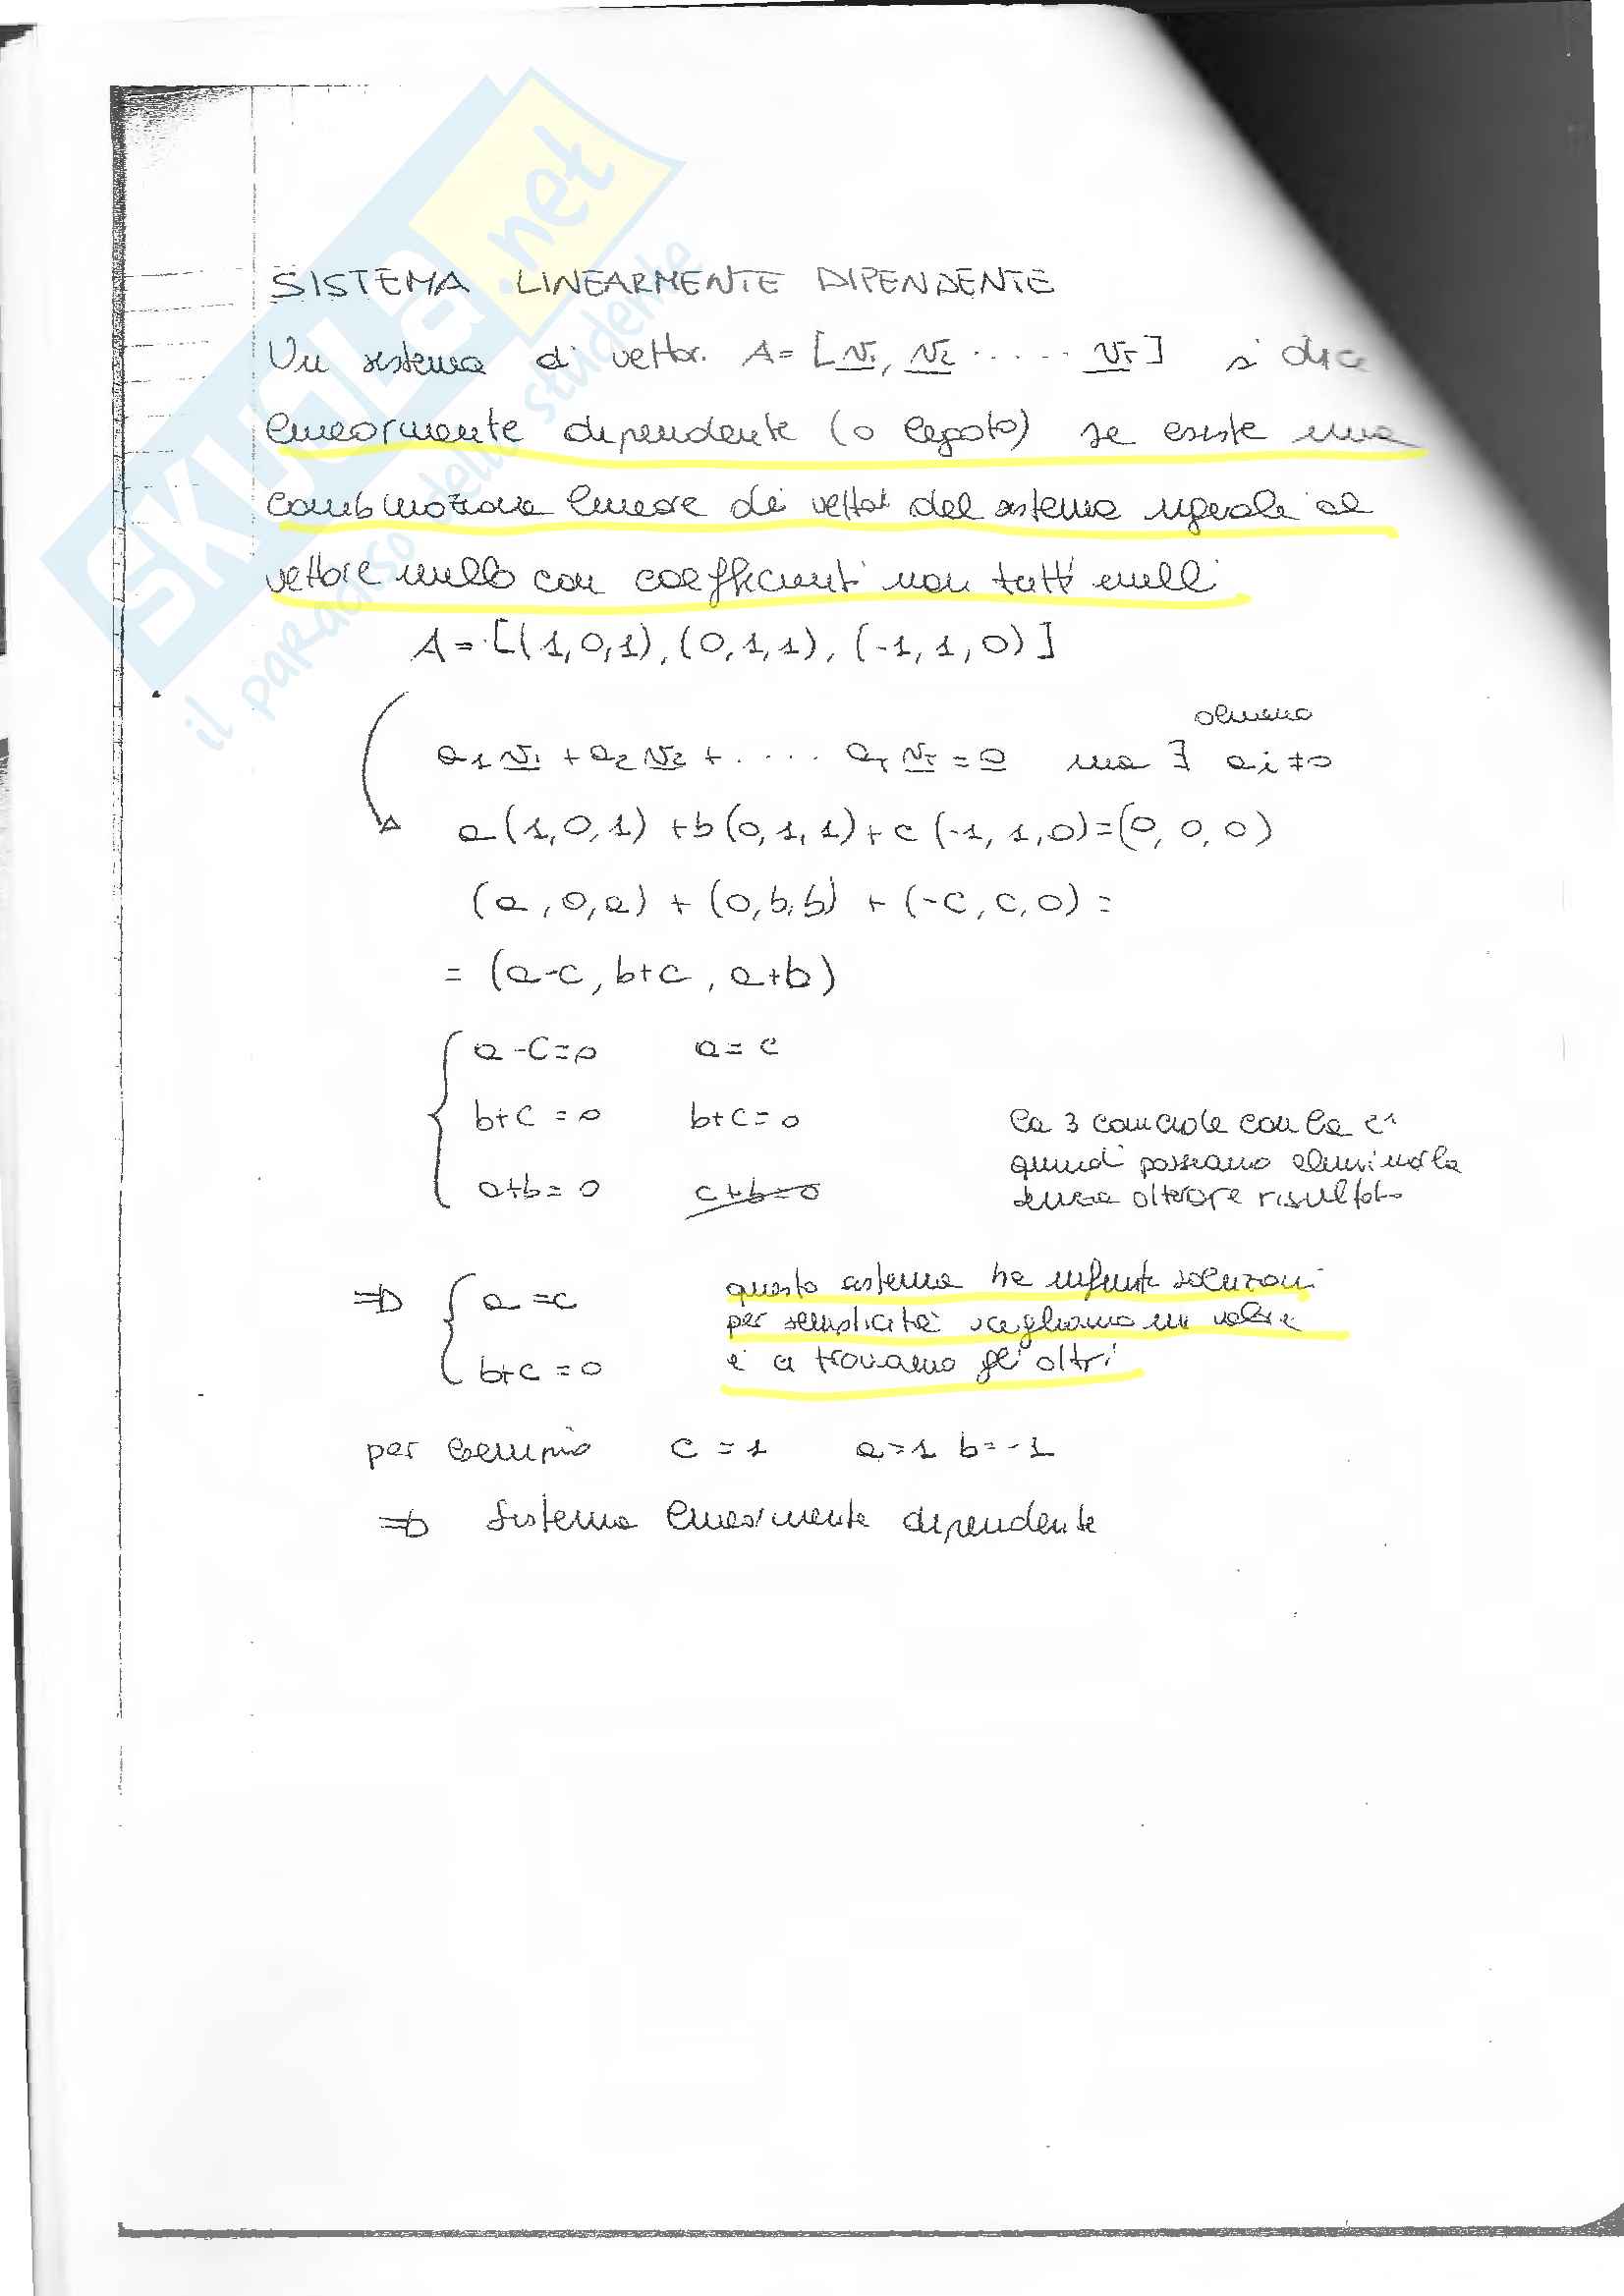 SKUOLA.net
il paradiso dello studente
SISTEMA LINEARMENTE DIPENDENTE
Un sistema di vettori A = [v1, v2 ..... vr] si dice
linearmente dipendente (o legato) se esiste una
combinazione lineare dei vettori del sistema uguale al
vettore nullo con coefficienti non tutti nulli
A = [(1,0,1), (0,1,1), (-1,1,0)]
almeno
a1 v1 + a2 v2 + .... ar vr = 0 ma ∃ ai ≠ 0
a(1,0,1) + b(0,1,1) + c(-1,1,0) = (0,0,0)
(a,0,a) + (0,b,b) + (-c,c,0) =
= (a-c, b+c, a+b)
a-c=0 a=c
b+c=0 b+c=0
a+b=0 c+b=0
la 3 coincide con la 2ª
quindi possiamo eliminarla
senza alterare risultato
⇒ a=c
b+c=0
questo sistema ha infinite soluzioni
per semplicità scegliamo un valore
e ci troviamo gli altri
per esempio c=1 a=1 b=-1
⇒ Sistema linearmente dipendente